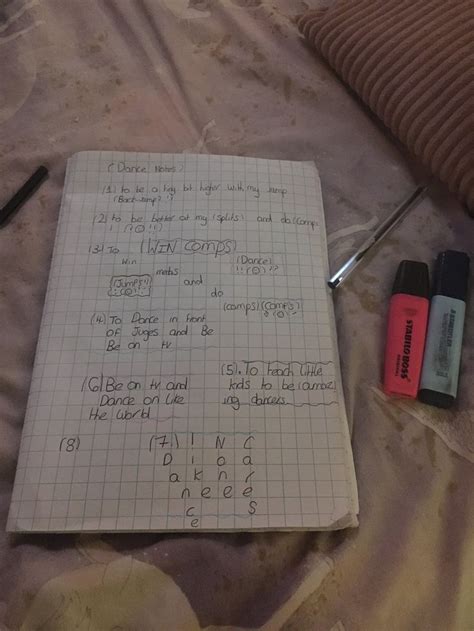 (Dance Notes)
(1) to be a tiny bit higher with my jump
(Back Jump? !?
(2) to be better at my (splits) and do (comps
(3) To (WIN COMPS)
Win (Dance)
!!(☺)!?
(Jumps!) and
do
(comps) (comps)
(4) To Dance in front
of Juges and Be
Be on tv
(5). To teach little
kids to be
ing dancers
(6) Be on tv and
Dance on like
the World
(8) (7) I N C
D i o a
a k n r
n e e e
c S
e
STABILO BOSS
STAEDTLER